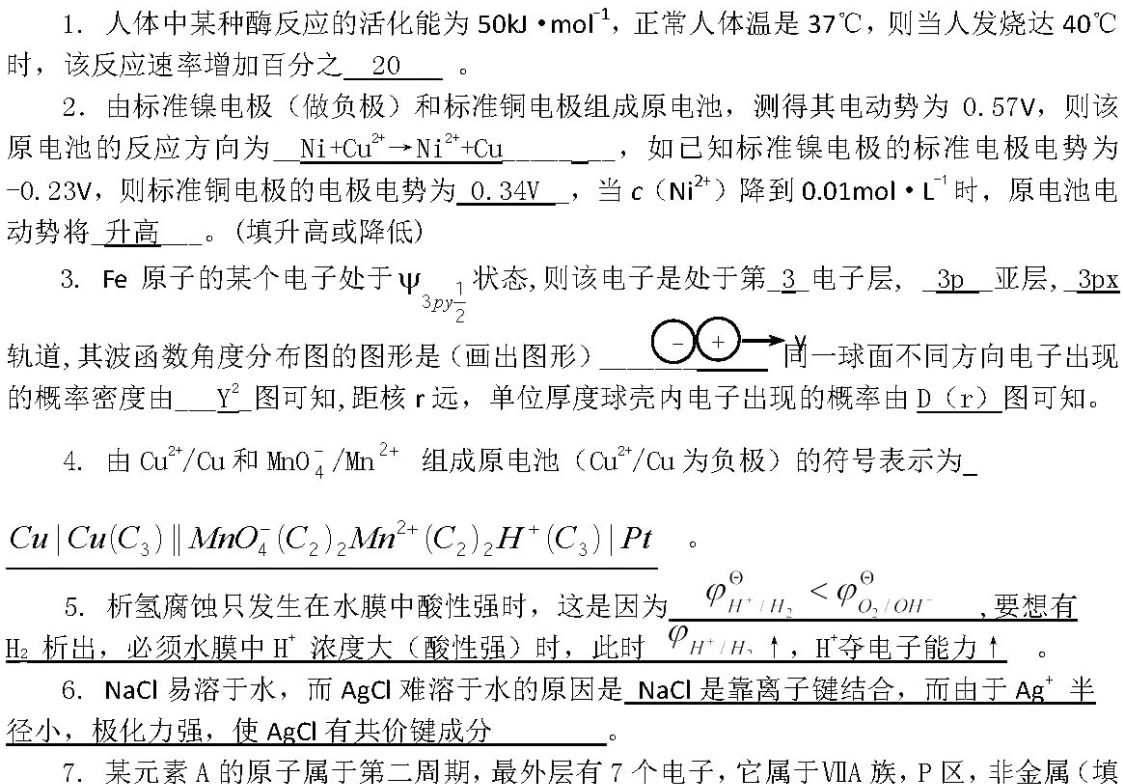 1. 人体中某种酶反应的活化能为 50kJ•mol⁻¹，正常人体温是 37℃，则当人发烧达 40℃
时，该反应速率增加百分之__20___ 。
2. 由标准镍电极（做负极）和标准铜电极组成原电池，测得其电动势为 0.57V，则该
原电池的反应方向为__Ni+Cu²⁺→Ni²⁺+Cu________，如已知标准镍电极的标准电极电势为
-0.23V，则标准铜电极的电极电势为_0.34V__，当 c（Ni²⁺）降到 0.01mol•L⁻¹ 时，原电池电
动势将_升高___。(填升高或降低)
3. Fe 原子的某个电子处于 ψ 3py 1/2 状态,则该电子是处于第_3_电子层, _3p__亚层,_3px
轨道,其波函数角度分布图的图形是（画出图形）________ - + y 同一球面不同方向电子出现
的概率密度由___Y²_图可知,距核 r 远，单位厚度球壳内电子出现的概率由 D（r）图可知。
4. 由 Cu²⁺/Cu 和 MnO₄⁻/Mn²⁺ 组成原电池（Cu²⁺/Cu 为负极）的符号表示为_
Cu|Cu(C₃)‖MnO₄⁻(C₂)₂Mn²⁺(C₂)₂H⁺(C₃)|Pt 。
5. 析氢腐蚀只发生在水膜中酸性强时，这是因为__φ^Θ H⁺/H₂ < φ^Θ O₂/OH⁻__,要想有
H₂ 析出，必须水膜中 H⁺ 浓度大（酸性强）时，此时 φ H⁺/H₂ ↑，H⁺夺电子能力↑ 。
6. NaCl 易溶于水，而 AgCl 难溶于水的原因是_NaCl 是靠离子键结合，而由于 Ag⁺ 半
径小，极化力强，使 AgCl 有共价键成分________。
7. 某元素 A 的原子属于第二周期,最外层有 7 个电子,它属于ⅦA 族,P 区,非金属(填